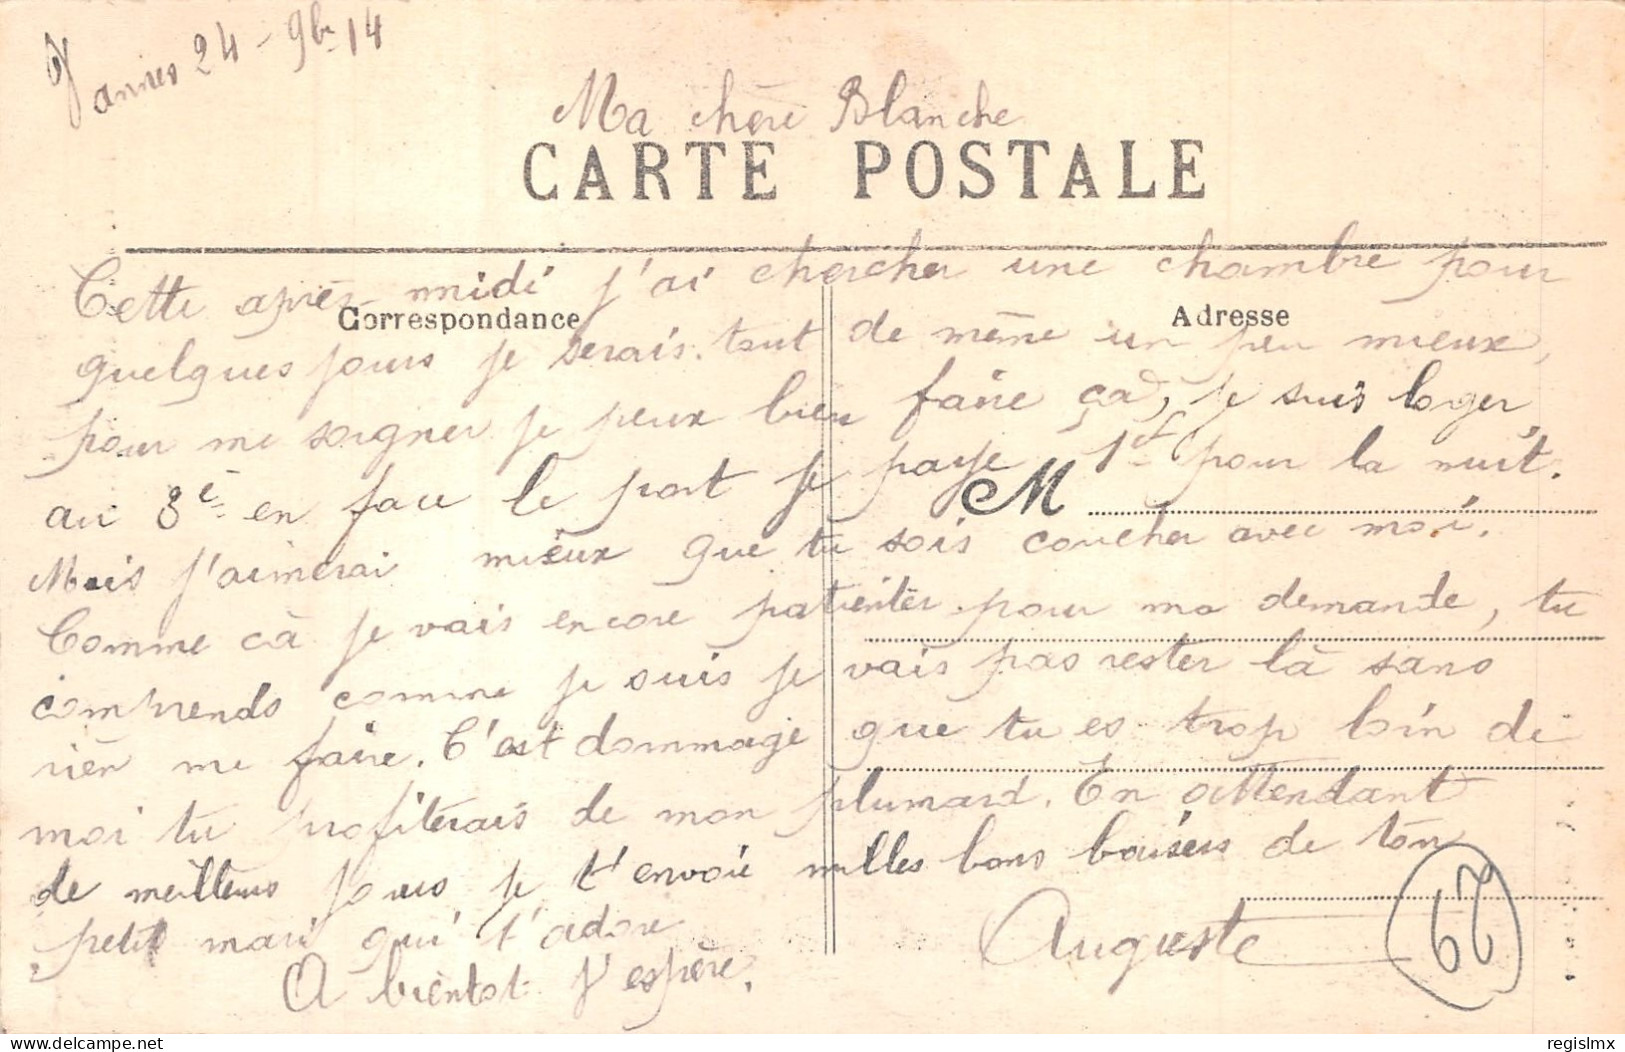 Vannes 24 - 9bre 14
Ma chère Blanche
CARTE POSTALE
Cette après midi j'ai chercher une chambre pour
Correspondance
Adresse
quelques jours je serais tout de même un peu mieux,
pour me soigner je peux bien faire ça, je suis loger
au 8e en face le port je paye 1f pour la nuit.
M
Mais j'aimerai mieux que tu sois coucher avec moi.
Comme cà je vais encore patienter pour ma demande, tu
comprends comme je suis je vais pas rester là sans
rien me faire. C'est dommage que tu es trop loin de
moi tu profiterais de mon plumard. En attendant
de meilleurs jours je t'envoie milles bons baisers de ton
petit mari qui t'adore
Auguste
A bientot j'espère.
62
delcampe.net
regislmx